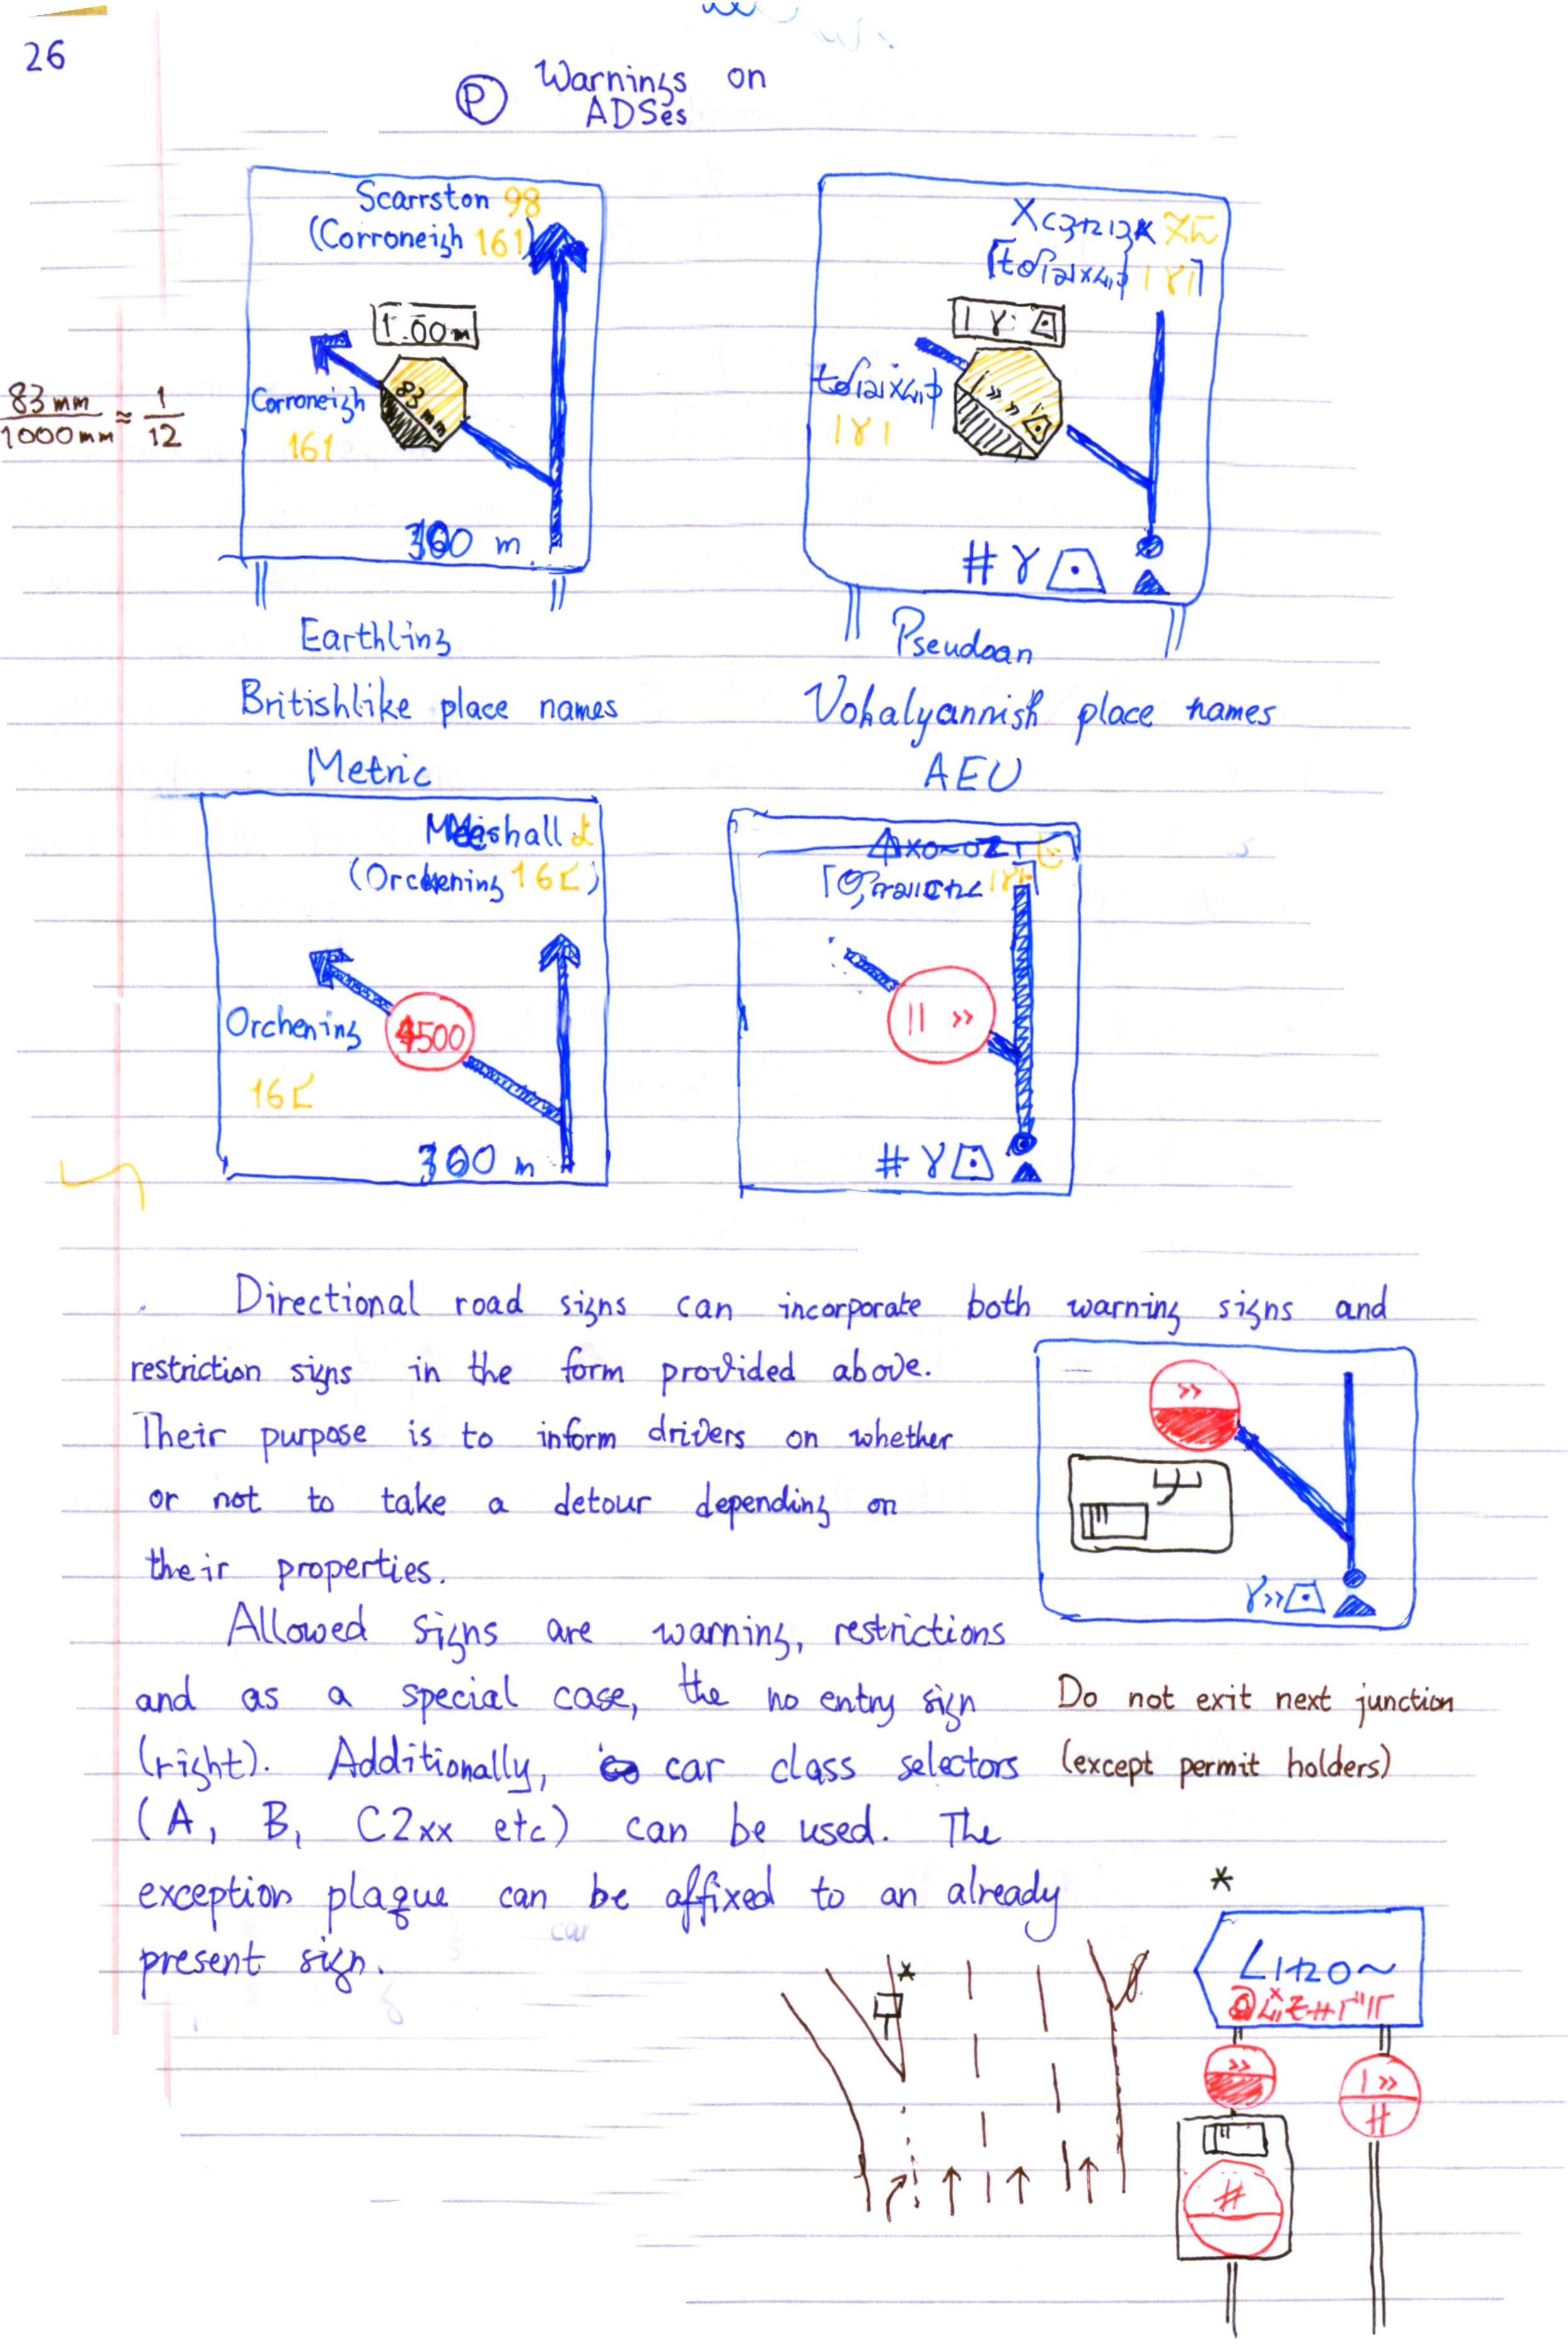 26
P Warnings on
ADSes
Scarrston 98
(Corroneigh 161)
1.00m
83 mm
Corroneigh
161
300 m
83 mm
1000 mm ≈ 1
12
# γ
Earthling
Pseudoan
Britishlike place names
Vohalyannish place names
Metric
AEU
shall
(Orchening 16)
Orchening
4500
16
300 m
|| »
# γ
Directional road signs can incorporate both warning signs and
restriction signs in the form provided above.
Their purpose is to inform drivers on whether
or not to take a detour depending on
their properties.
»
γ»
Allowed signs are warning, restrictions
and as a special case, the no entry sign
(right). Additionally, car class selectors
(A, B, C2xx etc) can be used. The
exception plaque can be affixed to an already
present sign.
Do not exit next junction
(except permit holders)
*
*
»
| »
#
#